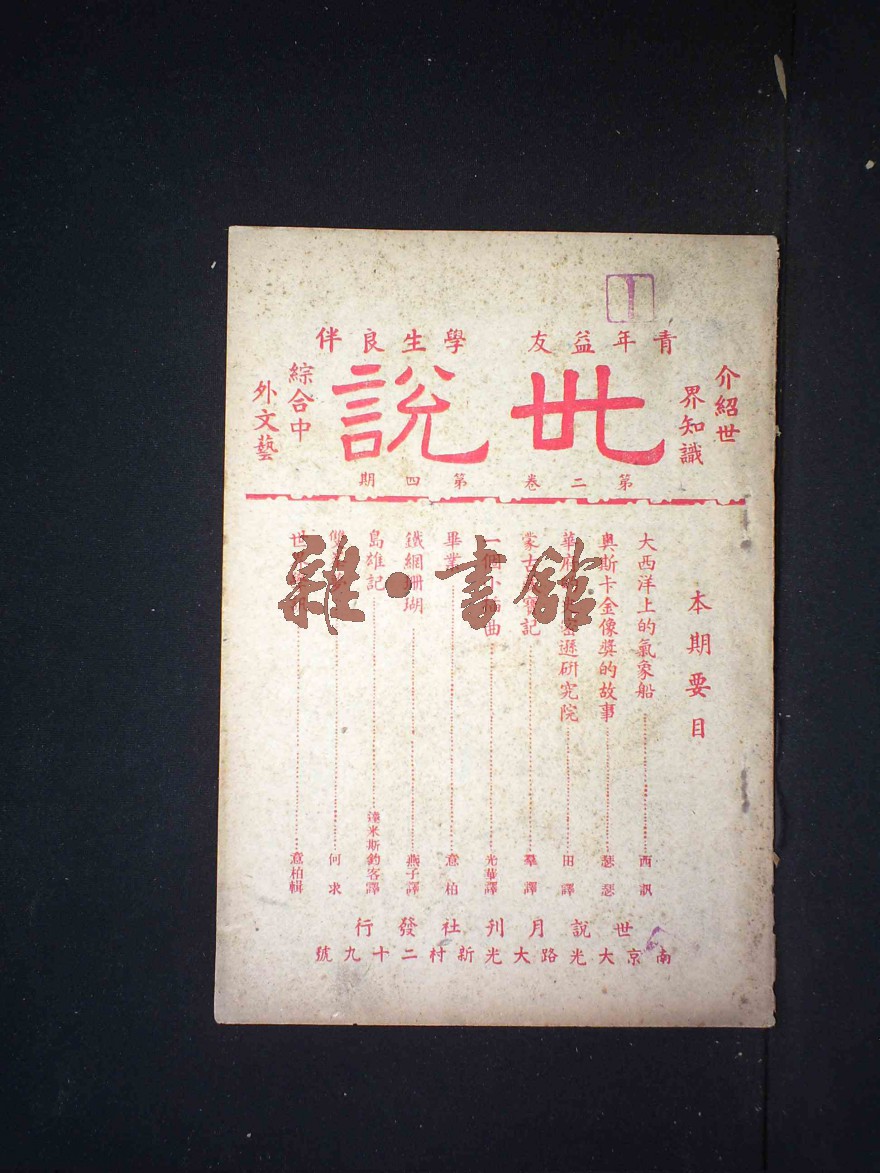 青年益友 學生良伴
介紹世
界知識
世說
綜合中
外文藝
第二卷 第四期
本期要目
大西洋上的氣象船 西訊
奥斯卡金像獎的故事 瑟瑟
華府 密遜研究院 田譯
蒙古 記 羣譯
一個小插曲 光華譯
畢業 意柏
鐵網珊瑚 燕子譯
島雄記 達米斯釣客譯
何求
世 意柏輯
世說月刊社發行
南京大光路大光新村二十九號
雜·書館